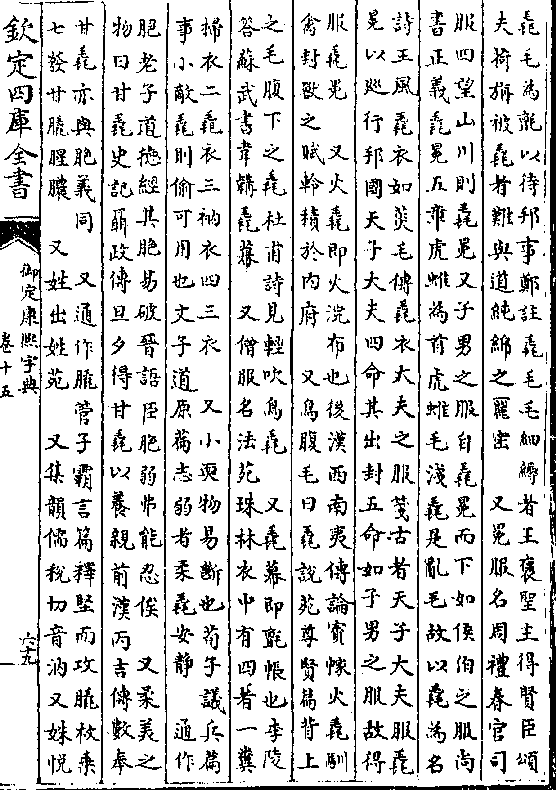 毳毛為氈以待邦事鄭註毳毛毛細縟者王褒聖主得賢臣頌
夫荷旃被毳者難與道純綿之麗密 又冕服名周禮春官司
服四望山川則毳冕又子男之服自毳冕而下如侯伯之服尚
書正義毳冕五章虎蜼為首虎蜼毛淺毳是亂毛故以毳為名
詩王風毳衣如菼毛傳毳衣大夫之服箋古者天子大夫服毳
冕以巡行邦國天子大夫四命其出封五命如子男之服故得
服毳冕 又火毳即火浣布也後漢西南夷傳論賨幏火毳馴
禽封獸之賦軨積於內府 又鳥腹毛曰毳說苑尊賢篇背上
之毛腹下之毳杜甫詩見輕吹鳥毳 又毳幕即氈帳也李陵
答蘇武書韋韝毳幕 又僧服名法苑珠林衣中有四者一糞
掃衣二毳衣三衲衣四三衣 又小耎物易斷也荀子議兵篇
事小敵毳則偷可用也文子道原篇志弱者柔毳安靜 通作
脃老子道德經其脃易破晉語臣脃弱弗能忍俟 又柔美之
物曰甘毳史記聶政傳旦夕得甘毳以養親前漢丙吉傳數奉
甘毳亦與脃義同 又通作脆管子霸言篇釋堅而攻脆枚乘
七發甘脆腥醲 又姓出姓苑 又集韻儒稅切音汭又姝悅
欽定四庫全書
御定康熙字典
卷十五
六十九